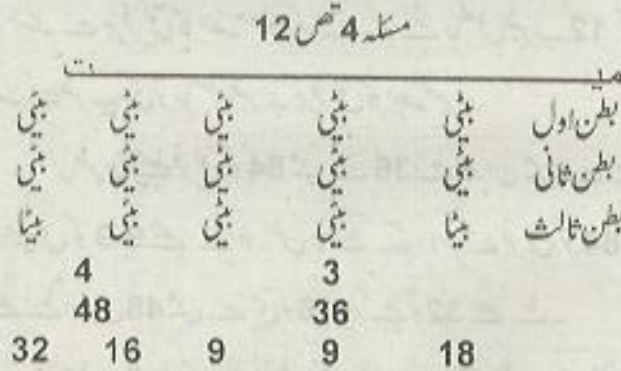 مسئلہ 4 تص 12
میــــــــت
بطن اول بیٹی بیٹی بیٹی بیٹی بیٹی
بطن ثانی بیٹی بیٹی بیٹی بیٹی بیٹی
بطن ثالث بیٹا بیٹی بیٹی بیٹی بیٹا
3 4
36 48
18 9 9 16 32